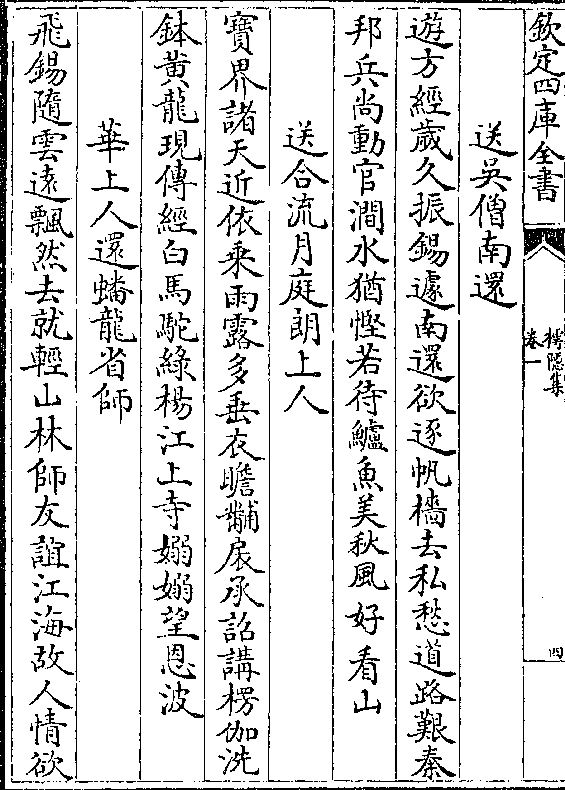 欽定四庫全書
楞隠集
卷一
四
送吳僧南還
遊方經歲久振錫遽南還欲逐帆檣去私愁道路艱秦
邦兵尚動官澗水猶慳若待鱸魚美秋風好看山
送合流月庭朗上人
寳界諸天近依乘雨露多垂衣瞻黼扆承詔講楞伽洗
鉢黃龍現傳經白馬駝綠楊江上寺嫋嫋望恩波
華上人還蟠龍省師
飛錫隨雲遠飄然去就輕山林師友誼江海故人情欲